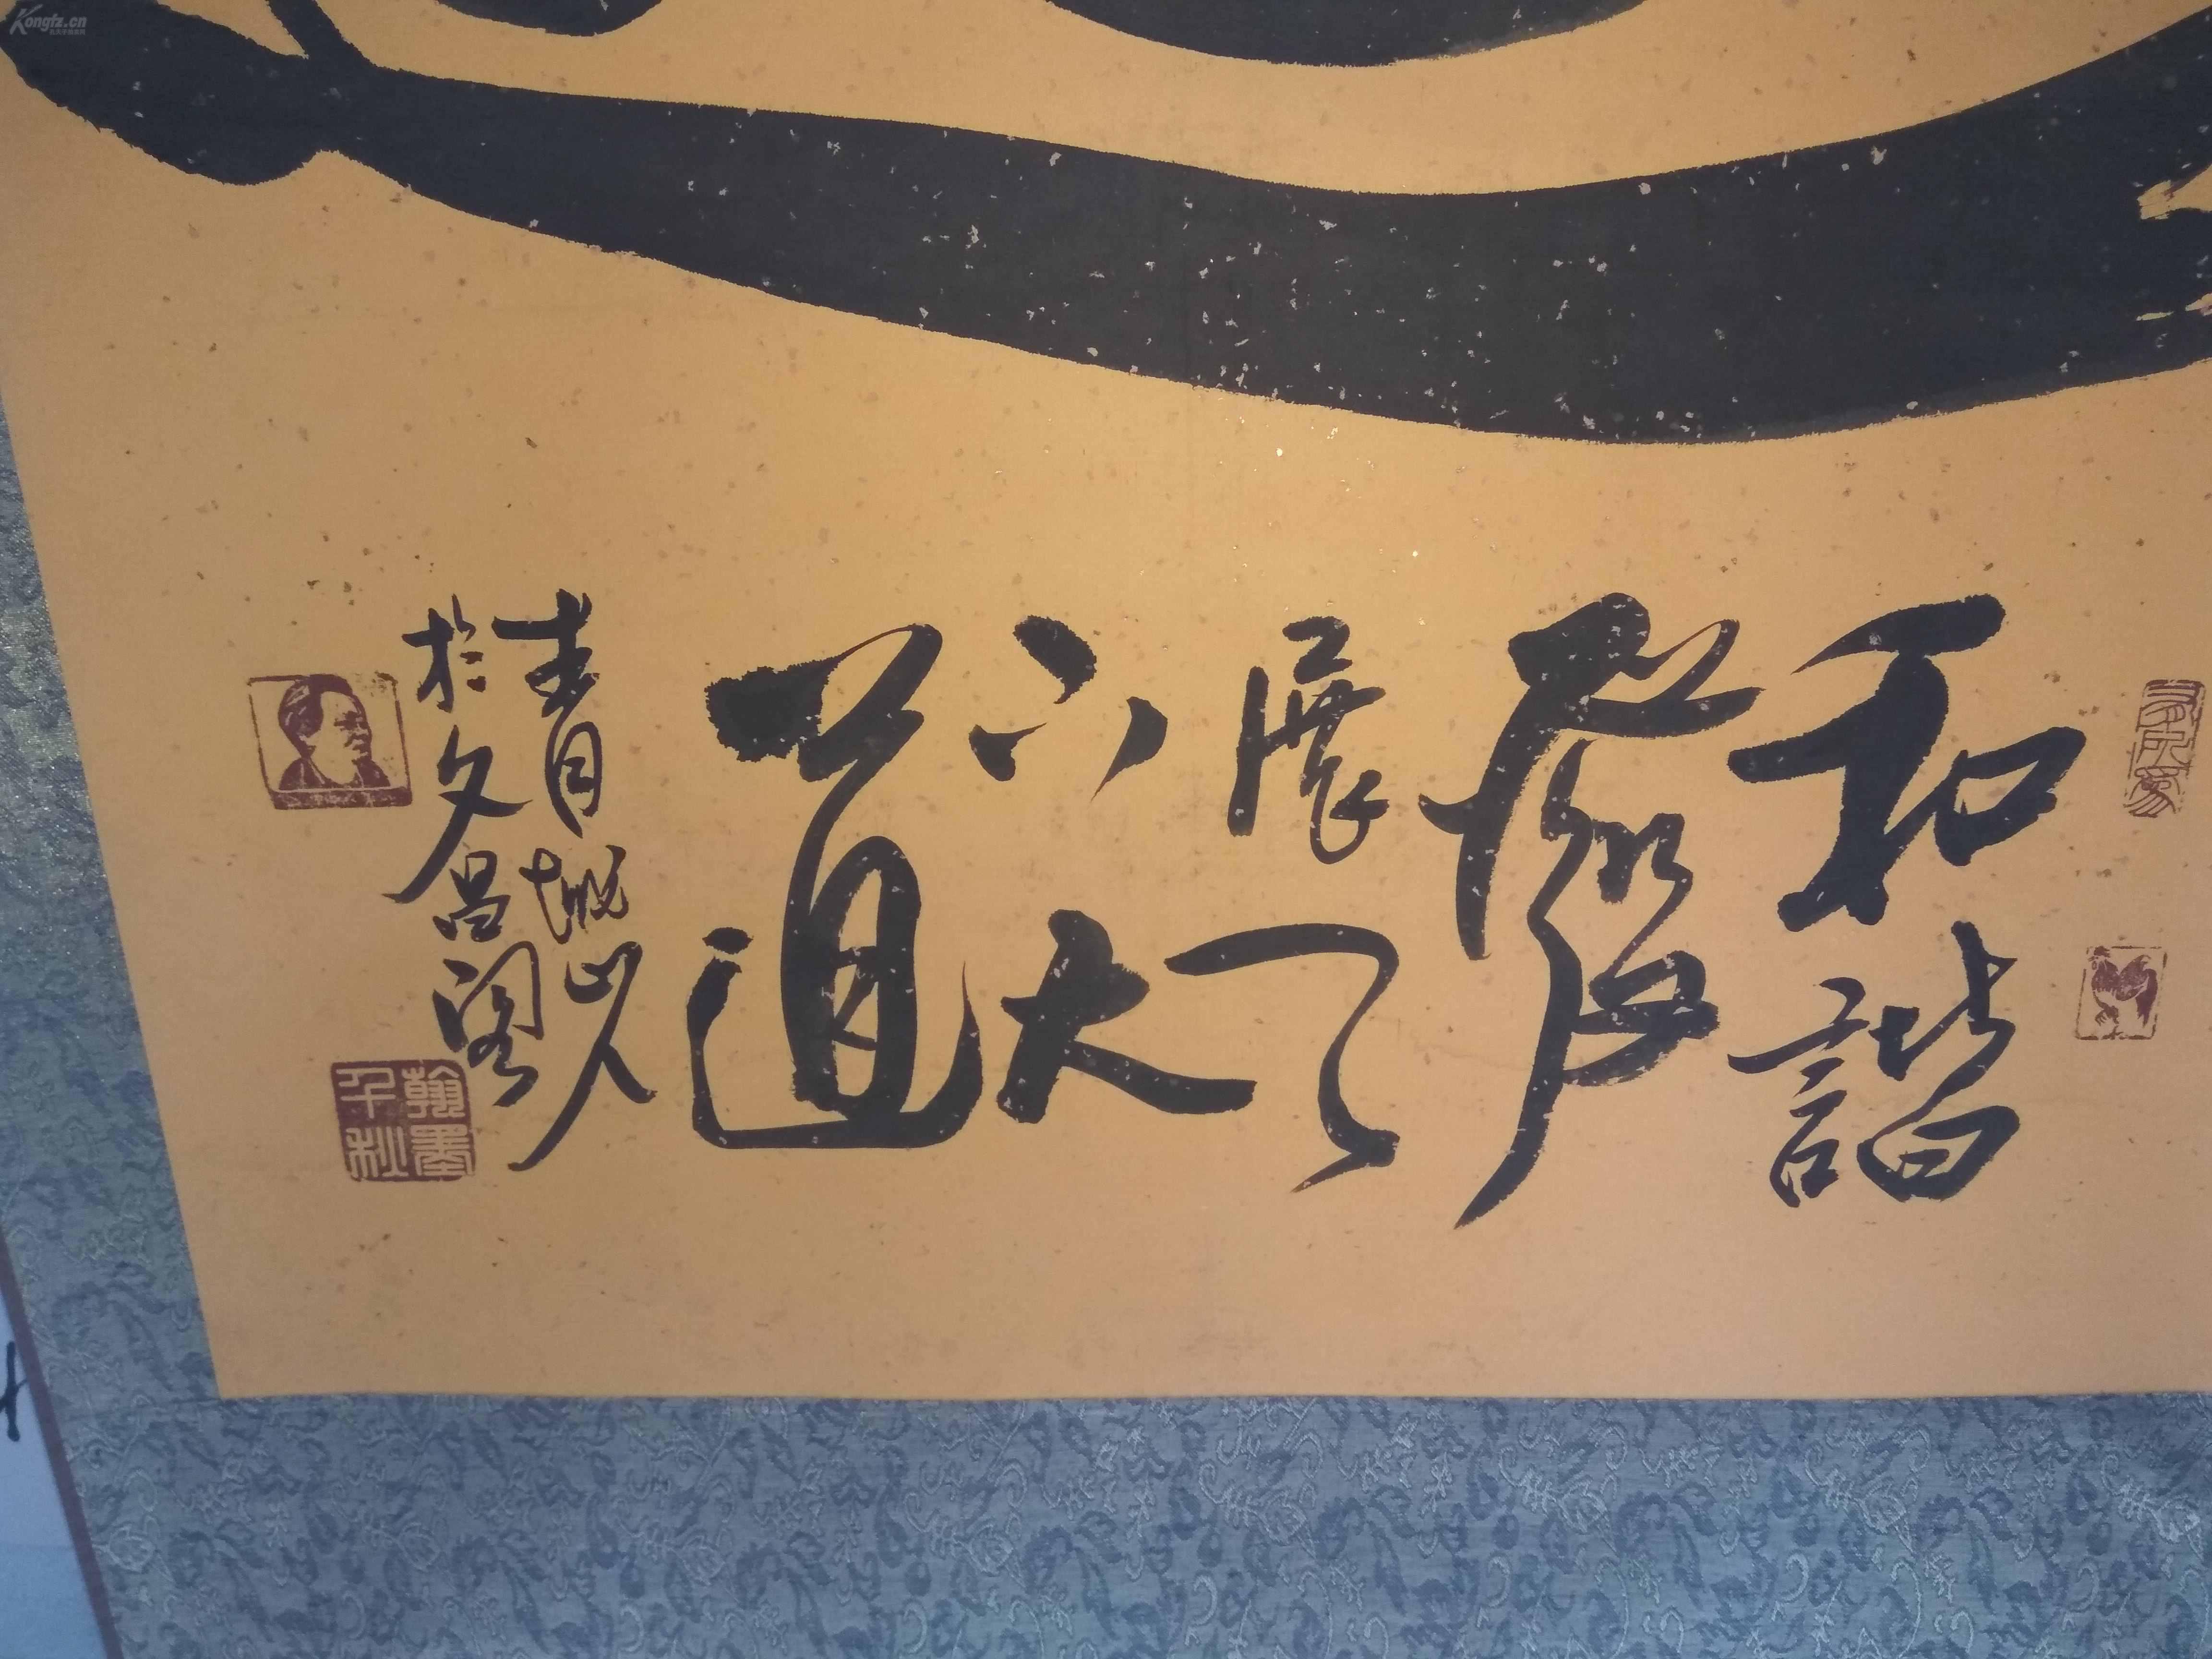 和諧
發展
天下
大道
青城山人
於文昌閣
翰墨千秋
Kongfz.cn